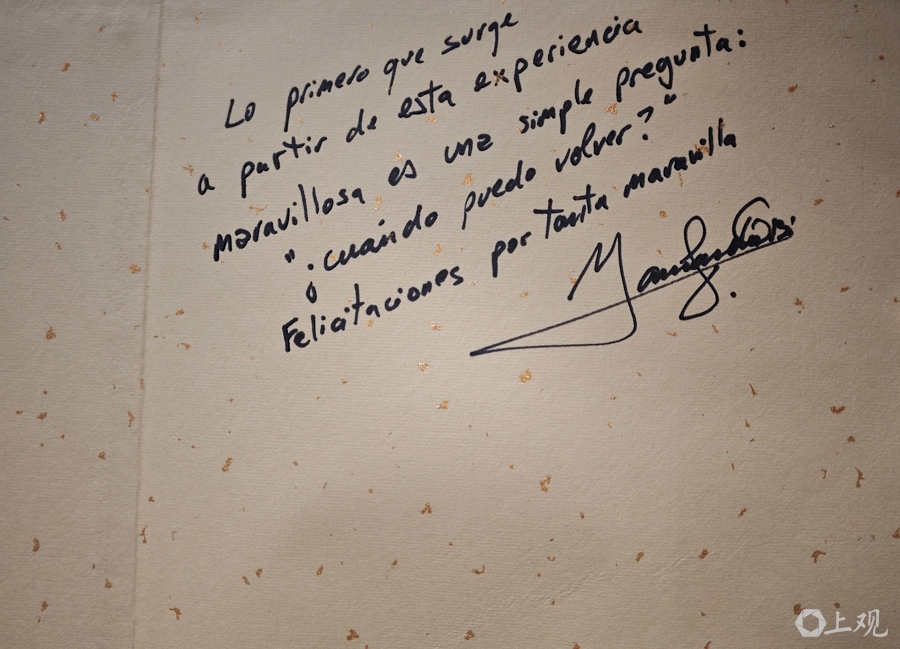 Lo primero que surge
a partir de esta experiencia
maravillosa es una simple pregunta:
"¿cuándo puedo volver?"
Felicitaciones por tanta maravilla
上观